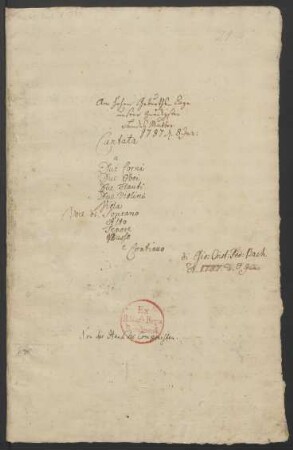 Am hohen Geburths Tage
unserer gnädigsten
Landes Mutter
1787. d. 8 Jun:
Cantata
a
Due Corni
Due Oboi
Due Flauti
Due Violini
Viola
Voce di Soprano
Alto
Tenore
Basso
e Continuo
di Gio: Crist: Fed: Bach
Ex
Von der Hand des Componisten.